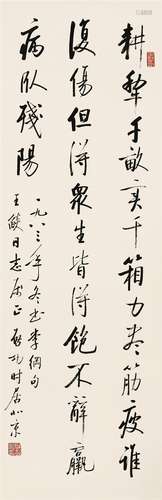 耕犁千亩实千箱力尽筋疲谁
复伤但得众生皆得饱不辞羸
病卧残阳
一九八三年冬书李纲句
王 同志属正 启功时居北京